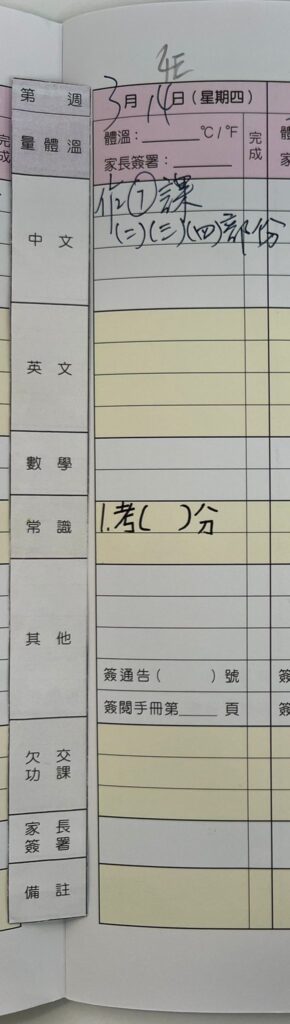 4E
第 週
3月14日(星期四)
量體溫
體溫:______℃/℉
家長簽署:______
完成
中文
作⑦課
(二)(三)(四)部份
英文
數學
常識
1.考( )分
其他
簽通告( )號
簽閱手冊第____頁
欠交功課
家長簽署
備註